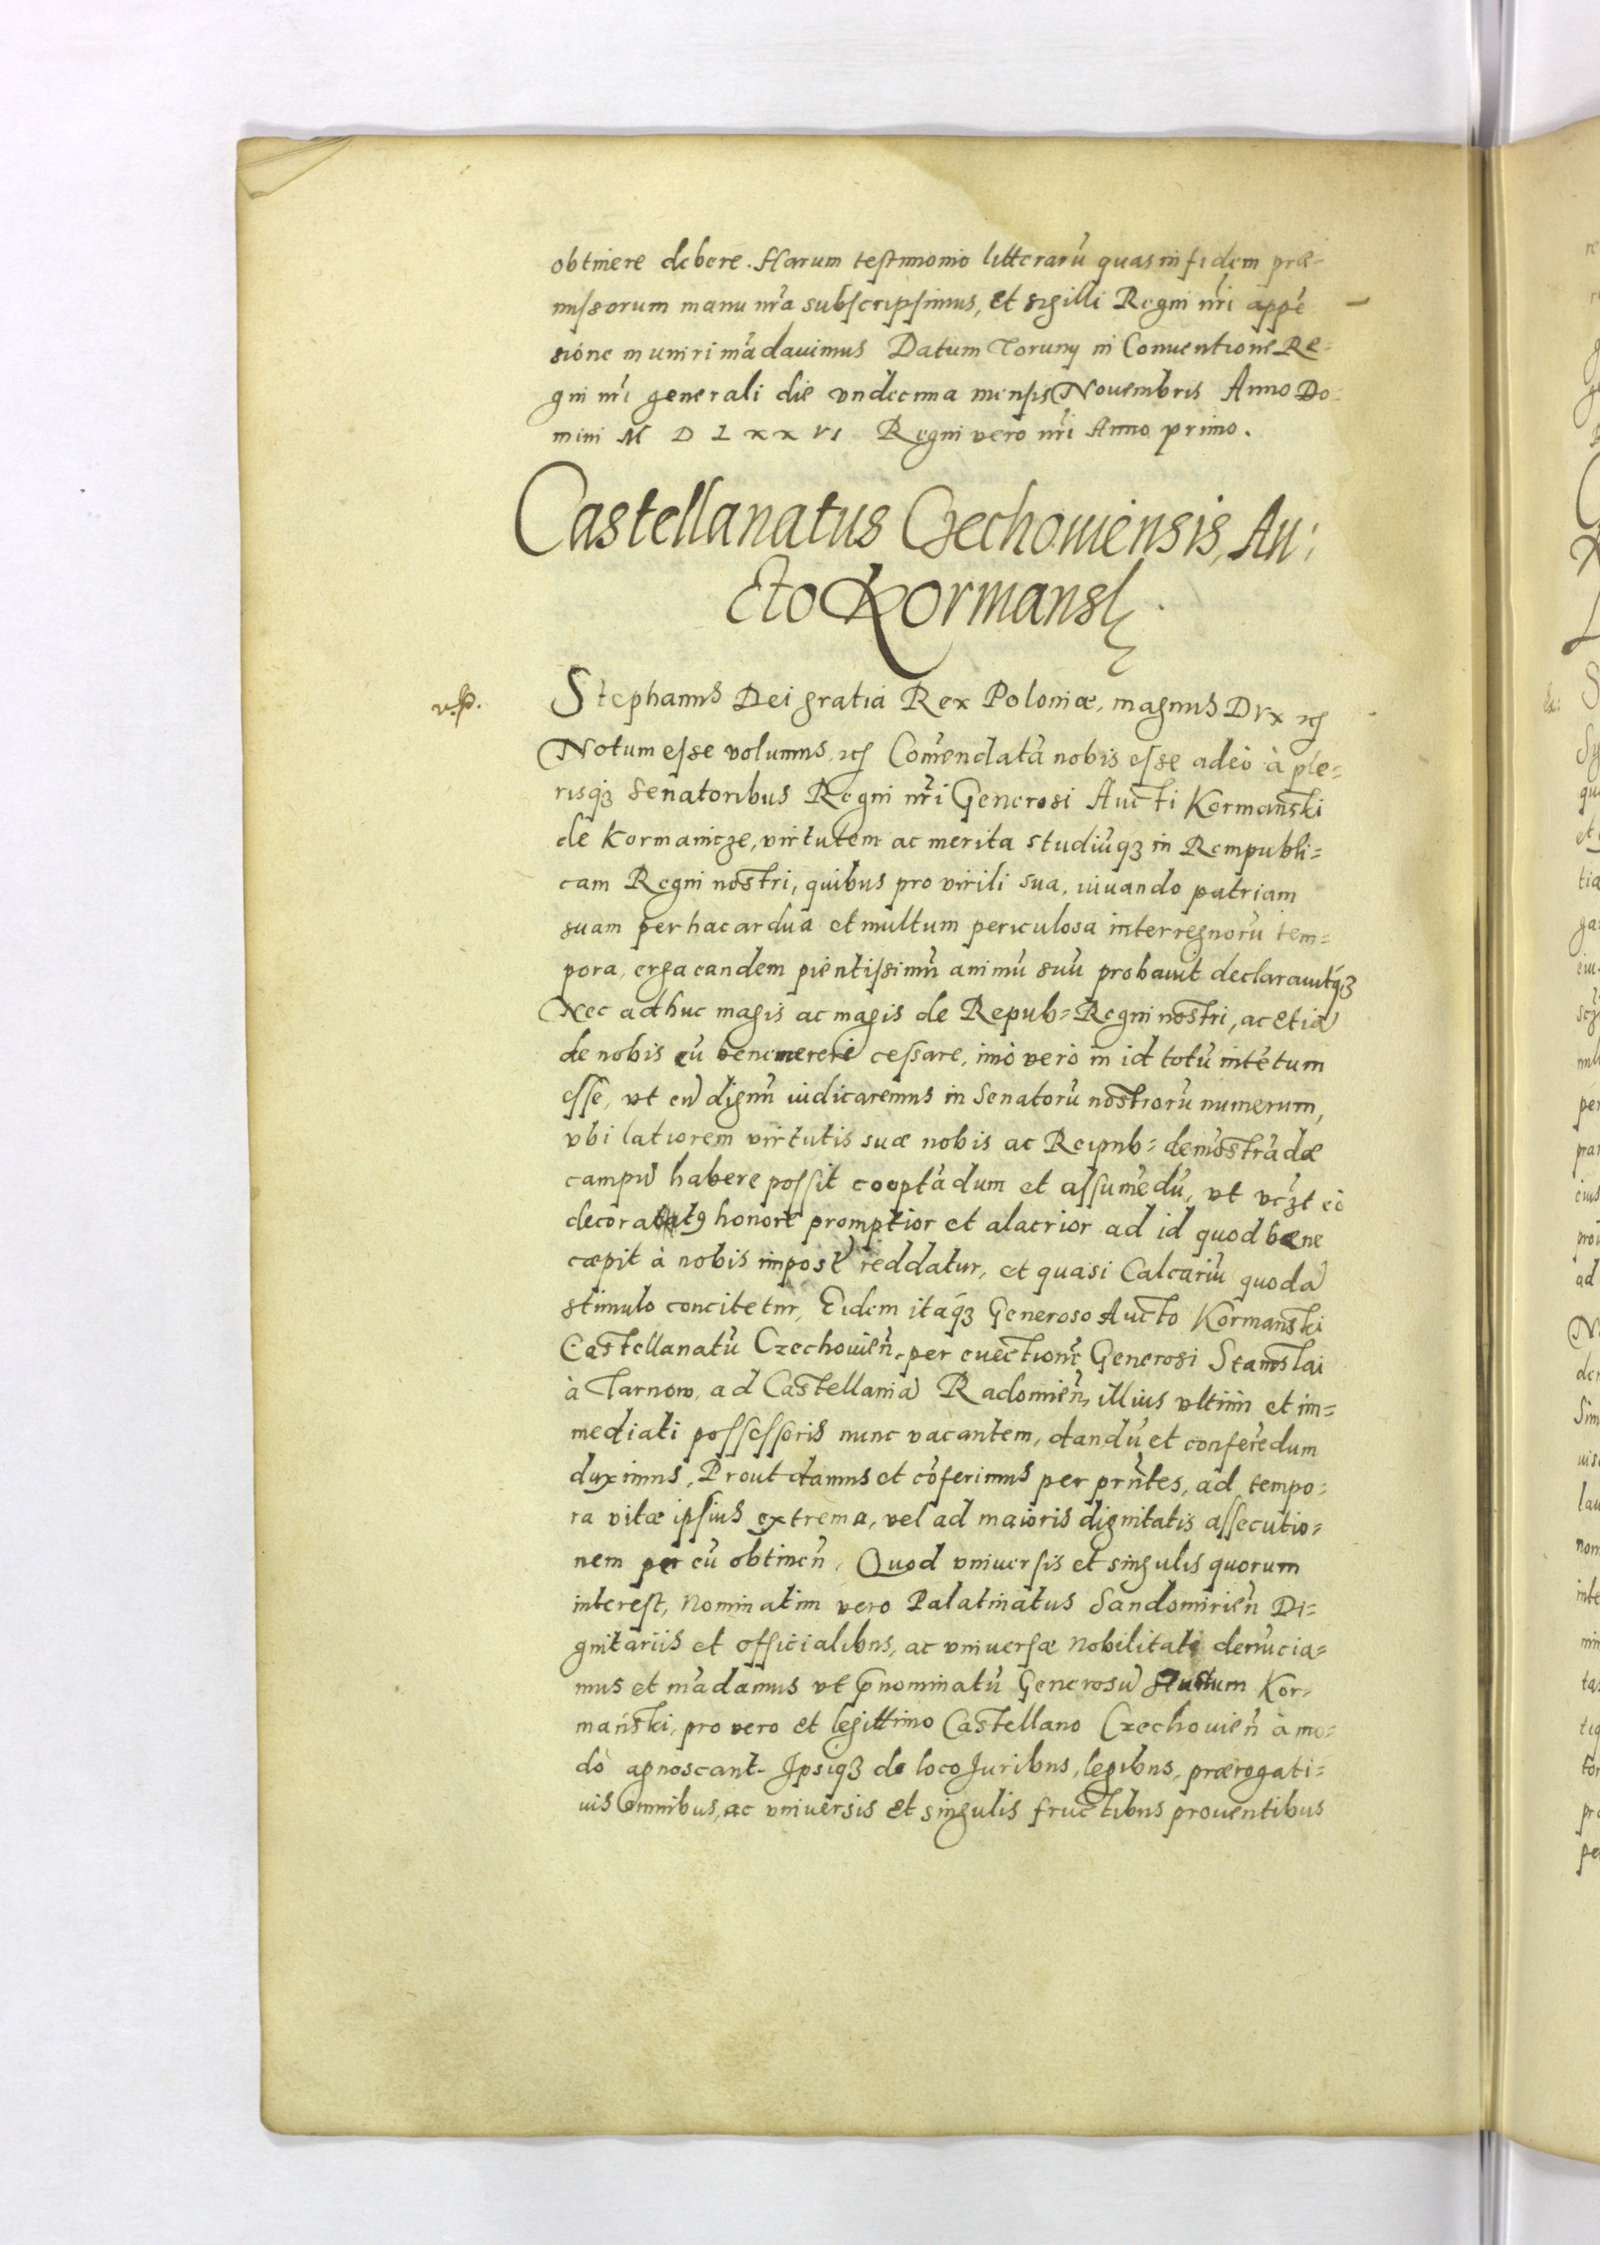 obtinere debere. Harum testimonio litterarũ quas in fidem præ-
missorum manu nr̃a subscripsimus, et sigilli Regni nr̃i appẽ
sione muniri mãdauimus Datum Toruny in Conuentione Re-
gni nr̃i generali die vndecima mensis Nouembris Anno Do-
mini M D L x x vi Regni vero nr̃i Anno primo.
Castellanatus Czechouiensis, Au:
cto Kormansk
Stephanus Dei gratia Rex Poloniæ, magnus Dvx
Notum esse volumus, Com̃endatã nobis esse adeò à ple=
risq3 Senatoribus Regni nr̃i Generosi Aucti Kormański
de Kormanicze, virtutem ac merita studiũq3 in Rempubli=
cam Regni nostri, quibus pro virili sua, iuuando patriam
suam per hac ardua et multum periculosa interregnorũ tem=
pora, erga eandem pientissimũ animũ suũ probauit declarauitq3
Nec adhuc magis ac magis de Repub= Regni nostri, ac etiã
de nobis eũ benemereri cessare, imò verò in id totũ intẽtum
esse, vt eũ dignũ iudicaremus in Senatorũ nostrorũ numerum,
vbi latiorem virtutis suæ nobis ac Reipub= demõstrãdæ
campũ habere possit cooptãdum et assumẽdũ, vt eò
honore promptior et alacrior ad id quod bæne
cæpit à nobis impost̃ reddatur, et quasi Calcariũ quodã
stimulo concitetur, Eidem itaq3 Generoso Aucto Kormański
Castellanatũ Czechouien̄. per euectionẽ Generosi Stanislai
à Tarnow, ad Castellaniã Radomien̄, illius vltimi et im=
mediati possessoris nunc vacantem, dandũ et conferẽdum
duximus, Prout damus et cõferimus per prñtes, ad tempo=
ra vitæ ipsius extrema, vel ad maioris dignitatis assecutio=
nem per eũ obtinen̄. Quod vniuersis et singulis quorum
interest, Nominatim vero Palatinatus Sandomirien̄ Di=
gnitariis et officialibus, ac vniuersæ Nobilitati denũcia=
mus et mãdamus vt p̃nominatũ Generosũ Auctum Kor=
mański, pro vero et legittimo Castellano Czechouien̄ à mo=
dò agnoscant. Ipsiq3 de loco Juribus, legibus, prærogati=
uis omnibus, ac vniuersis et singulis fructibus prouentibus